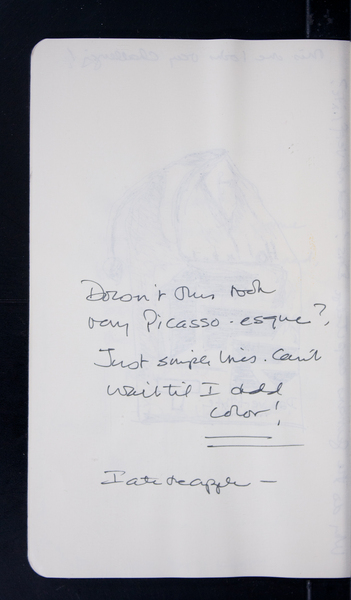 Doesn't this look
very Picasso-esque?
Just simple lines. Can't
wait til I add
color!
I ate the apple —